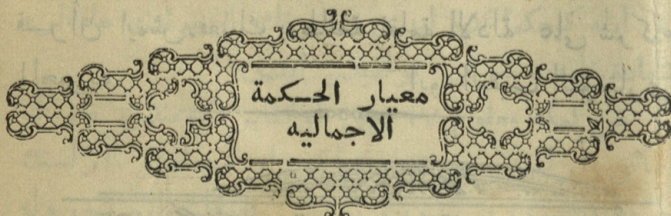 معيار الحكمة
الاجماليه